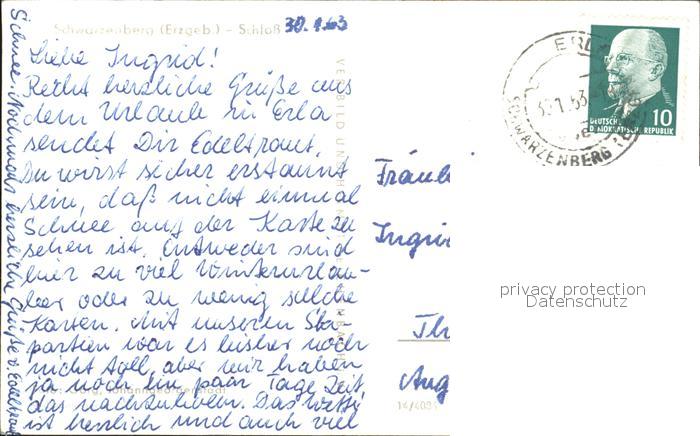 Schwarzenberg (Erzgeb.) - Schloß
30.1.63
Liebe Ingrid!
Recht herzliche Grüße aus
dem Urlaub in Erla
sendet Dir Edeltraut.
Du wirst sicher erstaunt
sein, daß nicht einmal
Schnee auf der Karte zu
sehen ist. Entweder sind
hier zu viel Winterurlau-
ber oder zu wenig solche
Karten. Mit unseren Ski-
partien war es bisher noch
nicht toll, aber wir haben
ja noch ein paar Tage Zeit
das nachzuholen. Das Wetter
ist herrlich und auch viel
Schnee. Nochmals herzliche Grüße v. Edeltraut
Fräul
Ingri
Th
Aug
14/409
ERLA
30.1.63
SCHWARZENBERG
DEUTSCHE
DEMOKRATISCHE REPUBLIK
10
privacy protection
Datenschutz